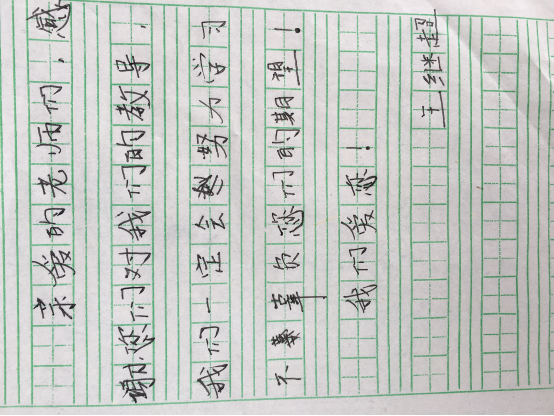 亲爱的老师们，感
谢您们对我们的教导，
我们一定会努力学习
不辜负您们的期望！
我们爱您！
王继超